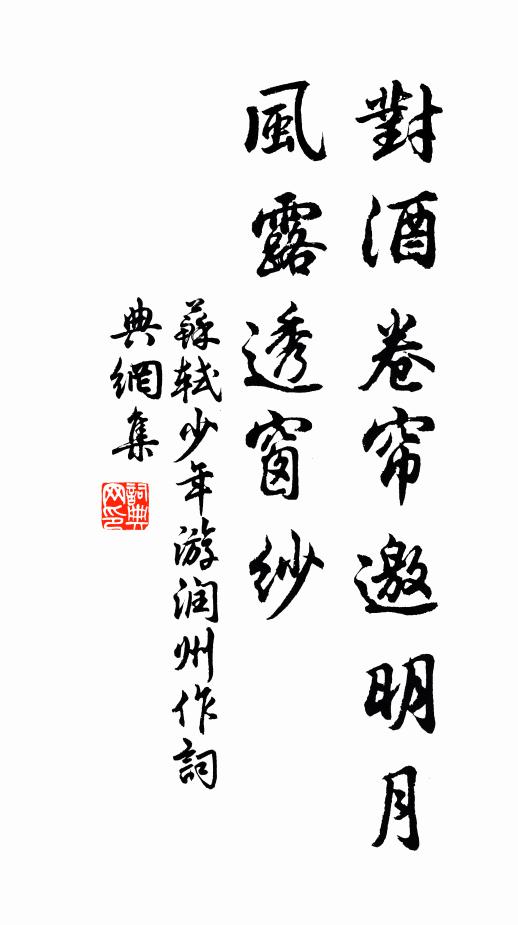 對酒卷帘邀明月
風露透窗紗
蘇軾少年游润州作詞
典網集
詞典網印